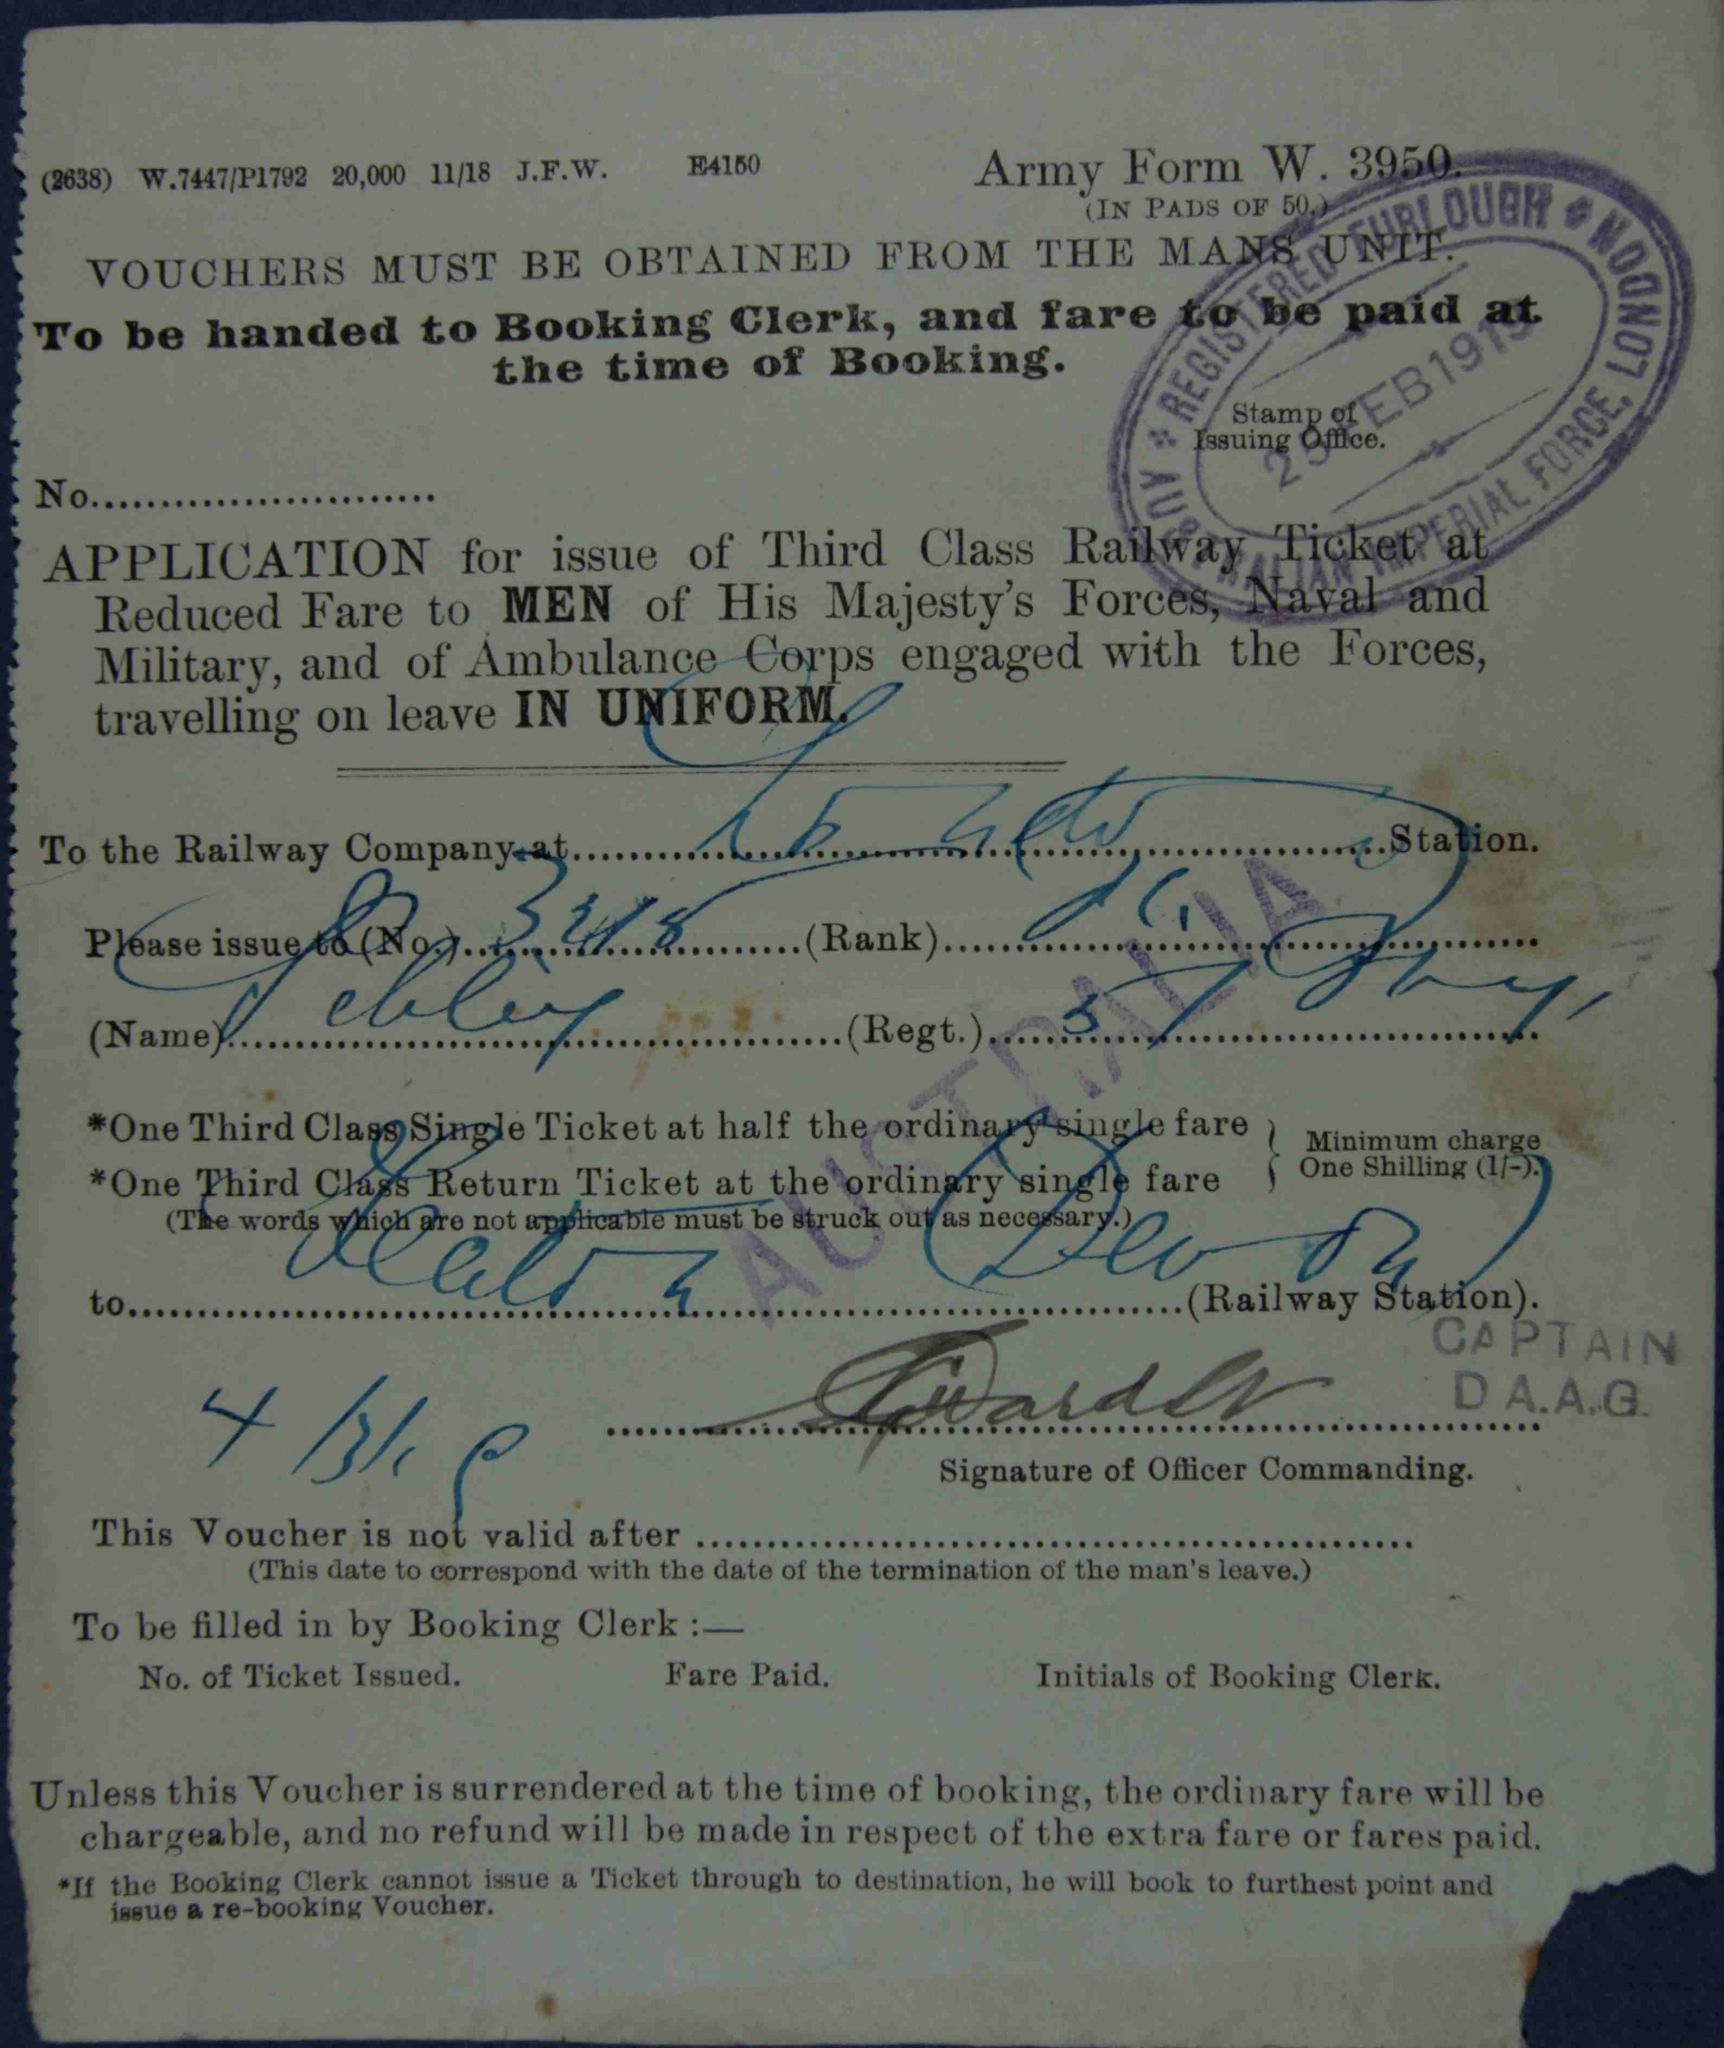 (2638) W.7447/P1792 20,000 11/18 J.F.W. E4150
Army Form W. 3950.
(IN PADS OF 50.)
VOUCHERS MUST BE OBTAINED FROM THE MANS UNIT.
To be handed to Booking Clerk, and fare to be paid at
the time of Booking.
REGISTERED FURLOUGH LONDON
AUSTRALIAN IMPERIAL FORCE, LONDON
FEB 1919
Stamp of
Issuing Office.
No..........................
APPLICATION for issue of Third Class Railway Ticket at
Reduced Fare to MEN of His Majesty's Forces, Naval and
Military, and of Ambulance Corps engaged with the Forces,
travelling on leave IN UNIFORM.
To the Railway Company at London Station.
Please issue to (No.) (Rank)
(Name) (Regt.) 57
*One Third Class Single Ticket at half the ordinary single fare
*One Third Class Return Ticket at the ordinary single fare
Minimum charge
One Shilling (1/-).
(The words which are not applicable must be struck out as necessary.)
AUSTRALIA
to Devon (Railway Station).
CAPTAIN
D A.A.G.
4/3/19
Signature of Officer Commanding.
This Voucher is not valid after
(This date to correspond with the date of the termination of the man's leave.)
To be filled in by Booking Clerk :—
No. of Ticket Issued. Fare Paid. Initials of Booking Clerk.
Unless this Voucher is surrendered at the time of booking, the ordinary fare will be
chargeable, and no refund will be made in respect of the extra fare or fares paid.
*If the Booking Clerk cannot issue a Ticket through to destination, he will book to furthest point and
issue a re-booking Voucher.